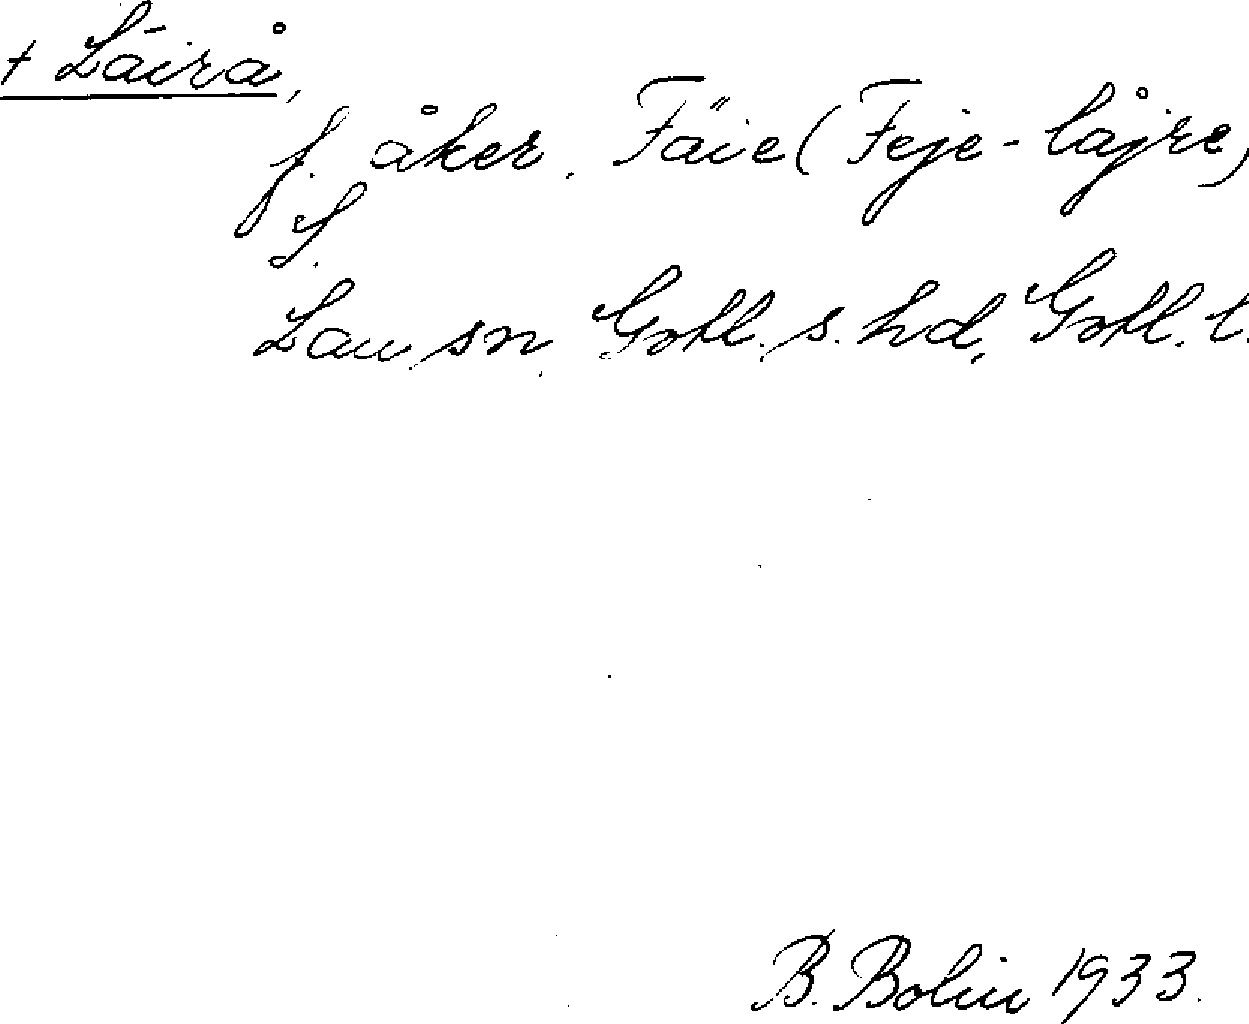 + Läirå,
f. åker. Fäie (Feje-låjre)
S.
Lau sn. Gotl. s. hd, Gotl. l.
B. Bolin 1933.